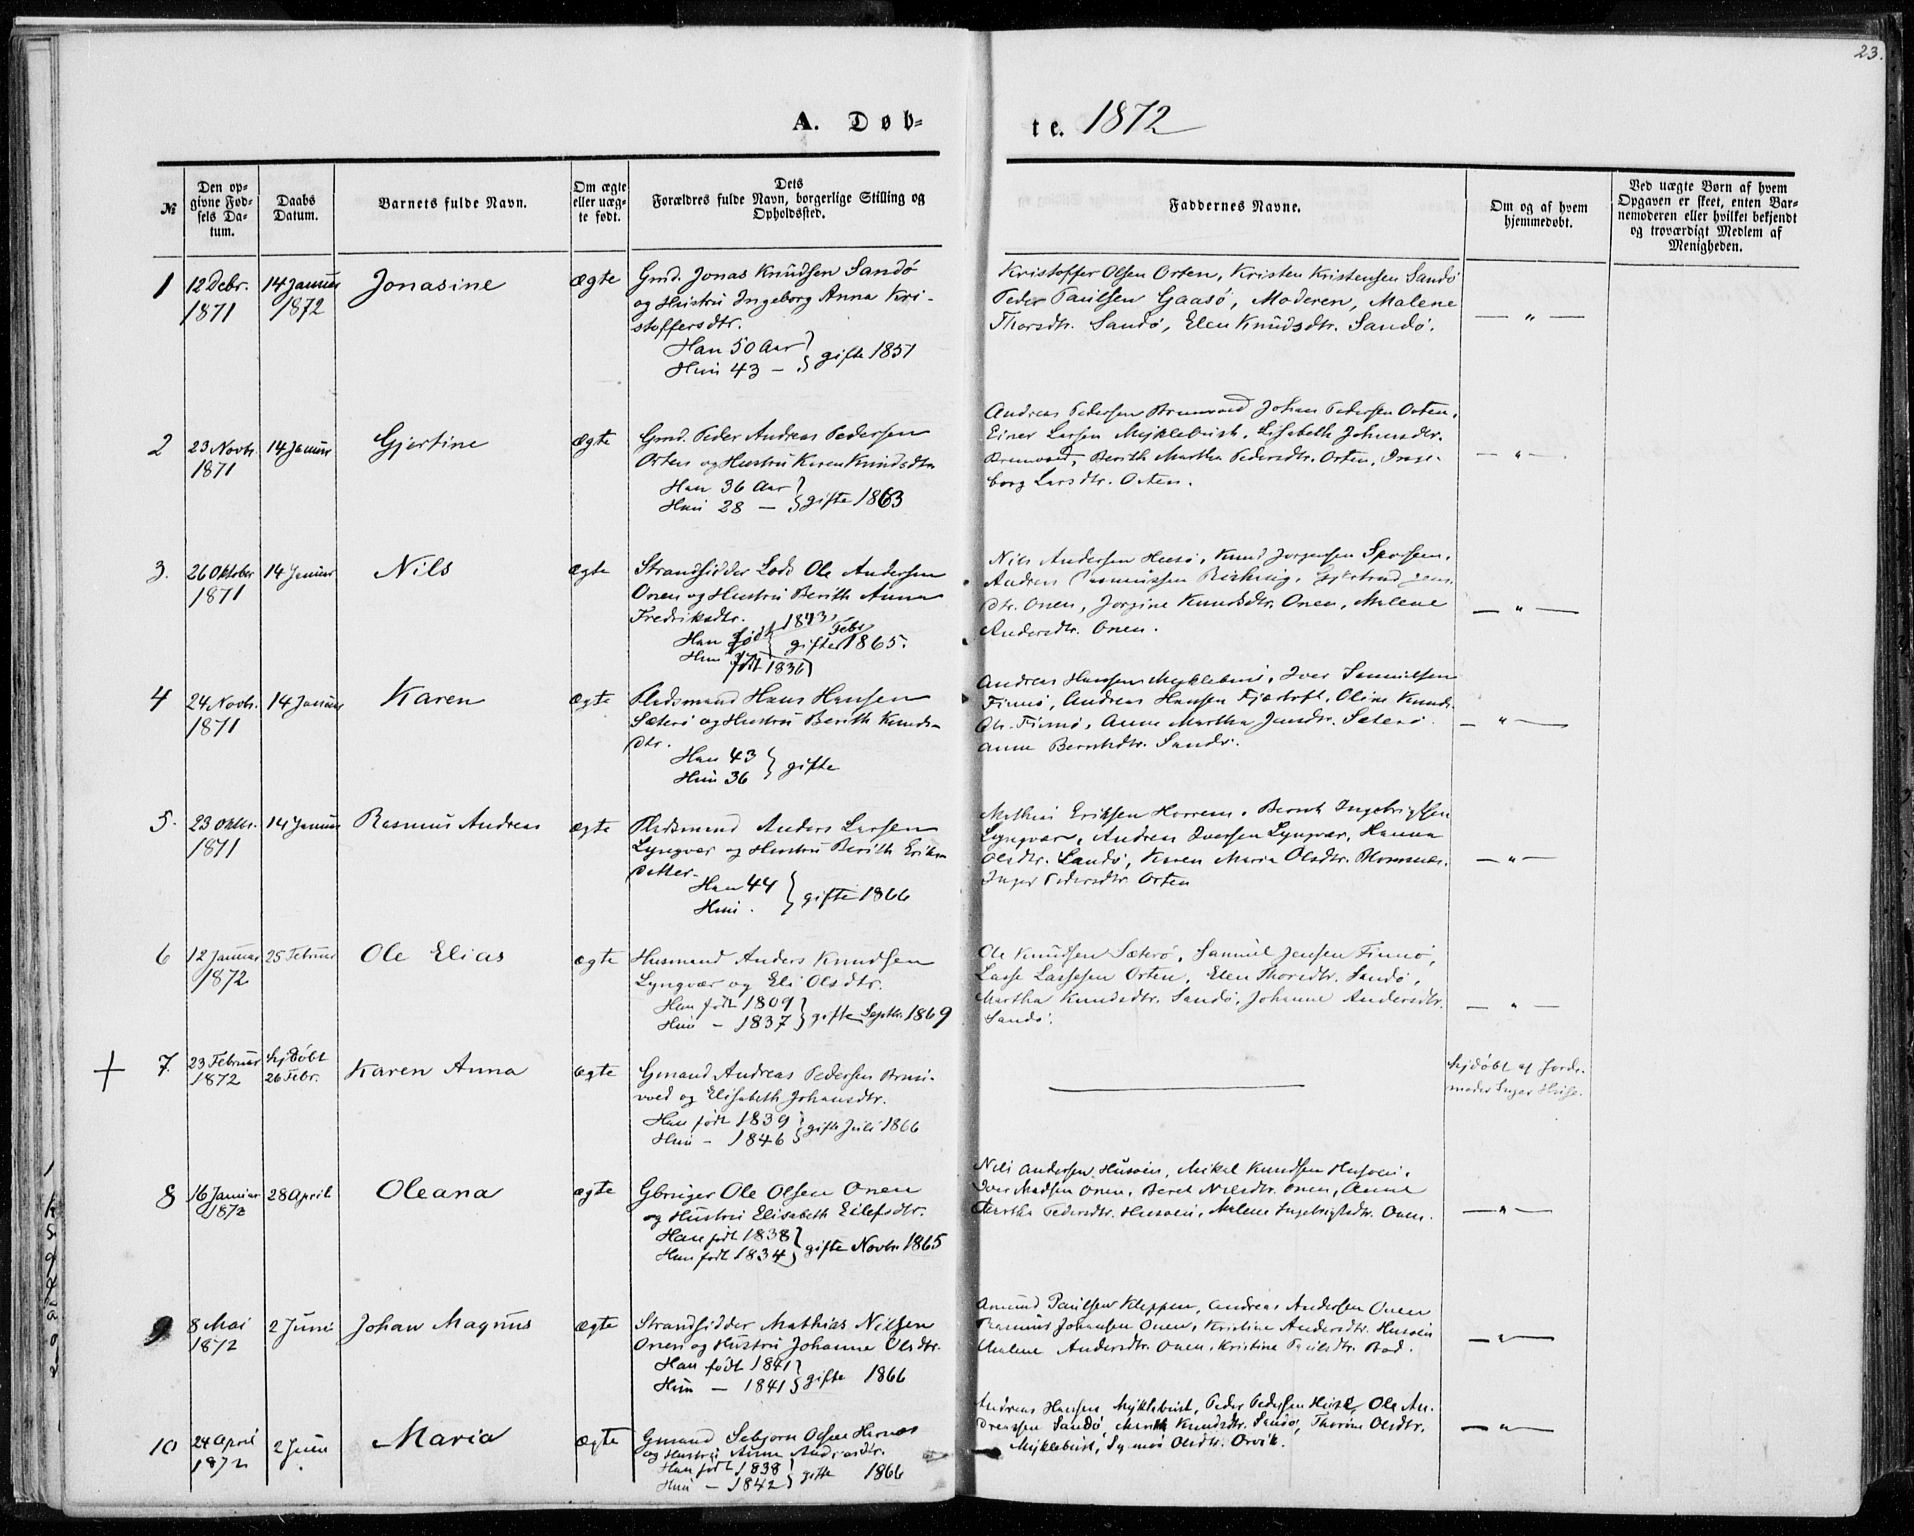 23.
A. Døb-
te. 1872
№
Den opgivne Fødsels Datum.
Daabs Datum.
Barnets fulde Navn.
Om ægte eller uægte født.
Dets Forældres fulde Navn, borgerlige Stilling og Opholdssted.
Faddernes Navne.
Om og af hvem hjemmedøbt.
Ved uægte Børn af hvem Opgaven er skeet, enten Barnemoderen eller hvilket bekjendt og troværdigt Medlem af Menigheden.
1
12 Debr.
1871
14 Januar
1872
Jonasine
ægte
Gmd. Jonas Knudsen Sandø
og Hustru Ingeborg Anna Kri-
stoffersdtr.
Han 50 Aar
Hun 43 — gifte 1851
Kristoffer Olsen Orten, Kristen Kristensen Sandø
Peder Paulsen Gaasø, Moderen, Malene
Thorsdtr. Sandø, Elen Knudsdtr. Sandø.
— " —
2
23 Novb.
1871
14 Januar
Gjertine
ægte
Gmd. Peder Andreas Pedersen
Orten og Hustru Karen Knudsdtr.
Han 36 Aar
Hun 28 — gifte 1863
Andreas Pedersen Johan Pedersen Orten,
Einer Larsen Myklebust, Lisabeth Johansdtr.
Berith Martha Pedersdtr. Orten, Inge-
borg Larsdtr. Orten.
— " —
3.
26 Oktober
1871
14 Januar
Nils
ægte
Strandsidder Lods Ole Andersen
Onen og Hustru Berith Anna
Fredriksdtr.
Han født 1843
Hun født 1836 gifte Febr 1865.
Nils Andersen Husø, Knud Jørgensen
Andreas Rasmussen
dtr. Onen, Jorgine Knudsdtr. Onen, Malene
Andersdtr. Onen.
— " —
4
24 Novb.
1871
14 Januar
Karen
ægte
Pladsmand Hans Hansen
Sæterø og Hustru Berith Knuds-
dtr.
Han 43
Hun 36 gifte
Andreas Hansen Myklebust, Iver Samuelsen
Finnø, Andreas Hansen Fjærtoft, Oline Knuds-
dtr. Finnø, Anne Martha Jensdtr. Sæterø.
Anne Berntsdtr. Sandø.
— " —
5.
23 Oktb.
1871
14 Januar
Rasmus Andreas
ægte
Pladsmand Anders Larsen
Lyngvær og Hustru Berith Eriks-
datter.
Han 44
Hun . gifte 1866
Mathias Eriksen Harrem, Bernt Ingebrigtsen
Lyngvær, Andreas Iversen Lyngvær, Hanna
Olsdtr. Sandø, Karen Maria Olsdtr.
Inger Pedersdtr Orten
— " —
6
12 Januar
1872
25 Februar
Ole Elias
ægte
Husmand Anders Knudsen
Lyngvær og Eli Olsdtr.
Han født 1809
Hun — 1837 gifte Septbr. 1869
Ole Knudsen Sæterø, Samuel Jensen Finnø,
Lasse Lassesen Orten, Elen Thorsdtr. Sandø,
Martha Knudsdtr. Sandø, Johanne Andersdtr.
Sandø.
— " —
+
7.
23 Februar
1872
Hjdøbt
26 Febr.
Karen Anna
ægte
Gmand Andreas Pedersen
og Elisabeth Johansdtr.
Han født 1839
Hun — 1846 gifte Juli 1866
Hjdøbt af Jorde-
moder Inger
8
16 Januar
1872
28 April
Oleana
ægte
Gbruger Ole Olsen Onen
og Hustru Elisabeth Eilefsdtr.
Han født 1838
Hun født 1834 gifte Novbr 1865
Nils Andersen Husøen, Mikal Knudsen Husøen,
Iver Madsen Onen, Beret Nilsdtr. Onen, Anne
Martha Pedersdtr. Husøen, Malene Ingebrigtsdtr. Onen.
— " —
9
8 Mai
1872
2 Juni
Johan Magnus
ægte
Strandsidder Mathias Nilsen
Onen og Hustru Johanne Olsdtr.
Han født 1841
Hun — 1841 gifte 1866
Amund Paulsen Kleppen, Andreas Andersen Onen
Rasmus Johansen Onen, Kristine Andersdtr. Husøen
Malene Andersdtr. Onen, Kristine Paulsdtr.
— " —
10
24 April
1872
2 Juni
Maria
ægte
Gmand Sebjørn Olsen Harnæs
og Hustru Anne Andreasdtr.
Han født 1838
Hun — 1842 gifte 1866
Andreas Hansen Myklebust, Peder Pedersen Ole An-
dreassen Sandø, Knudsdtr. Sandø, Thorine Olsdtr.
Myklebust, Synnø Olsdtr. Orvik.
— " —